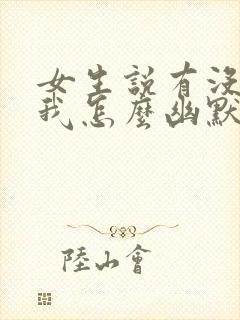 女生說有沒
我怎麼幽默
陸山會